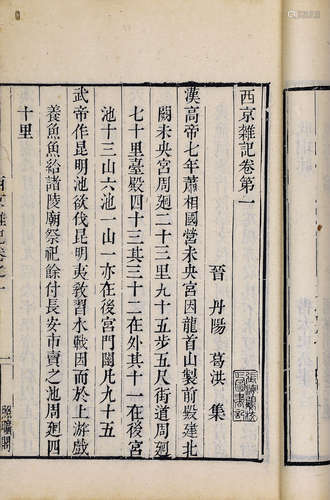 西京雜記卷第一
晉 丹陽 葛洪 集
漢高帝七年蕭相國營未央宮因龍首山製前殿建北
闕未央宮周廻二十三里九十五步五尺街道周廻
七十里臺殿四十三其三十二在外其十一在後宮
池十三山六池一山一亦在後宮門闥凡九十五
武帝作昆明池欲伐昆明夷敎習水戰因而於上游戲
養魚魚給諸陵廟祭祀餘付長安市賣之池周廻四
十里
照曠閣